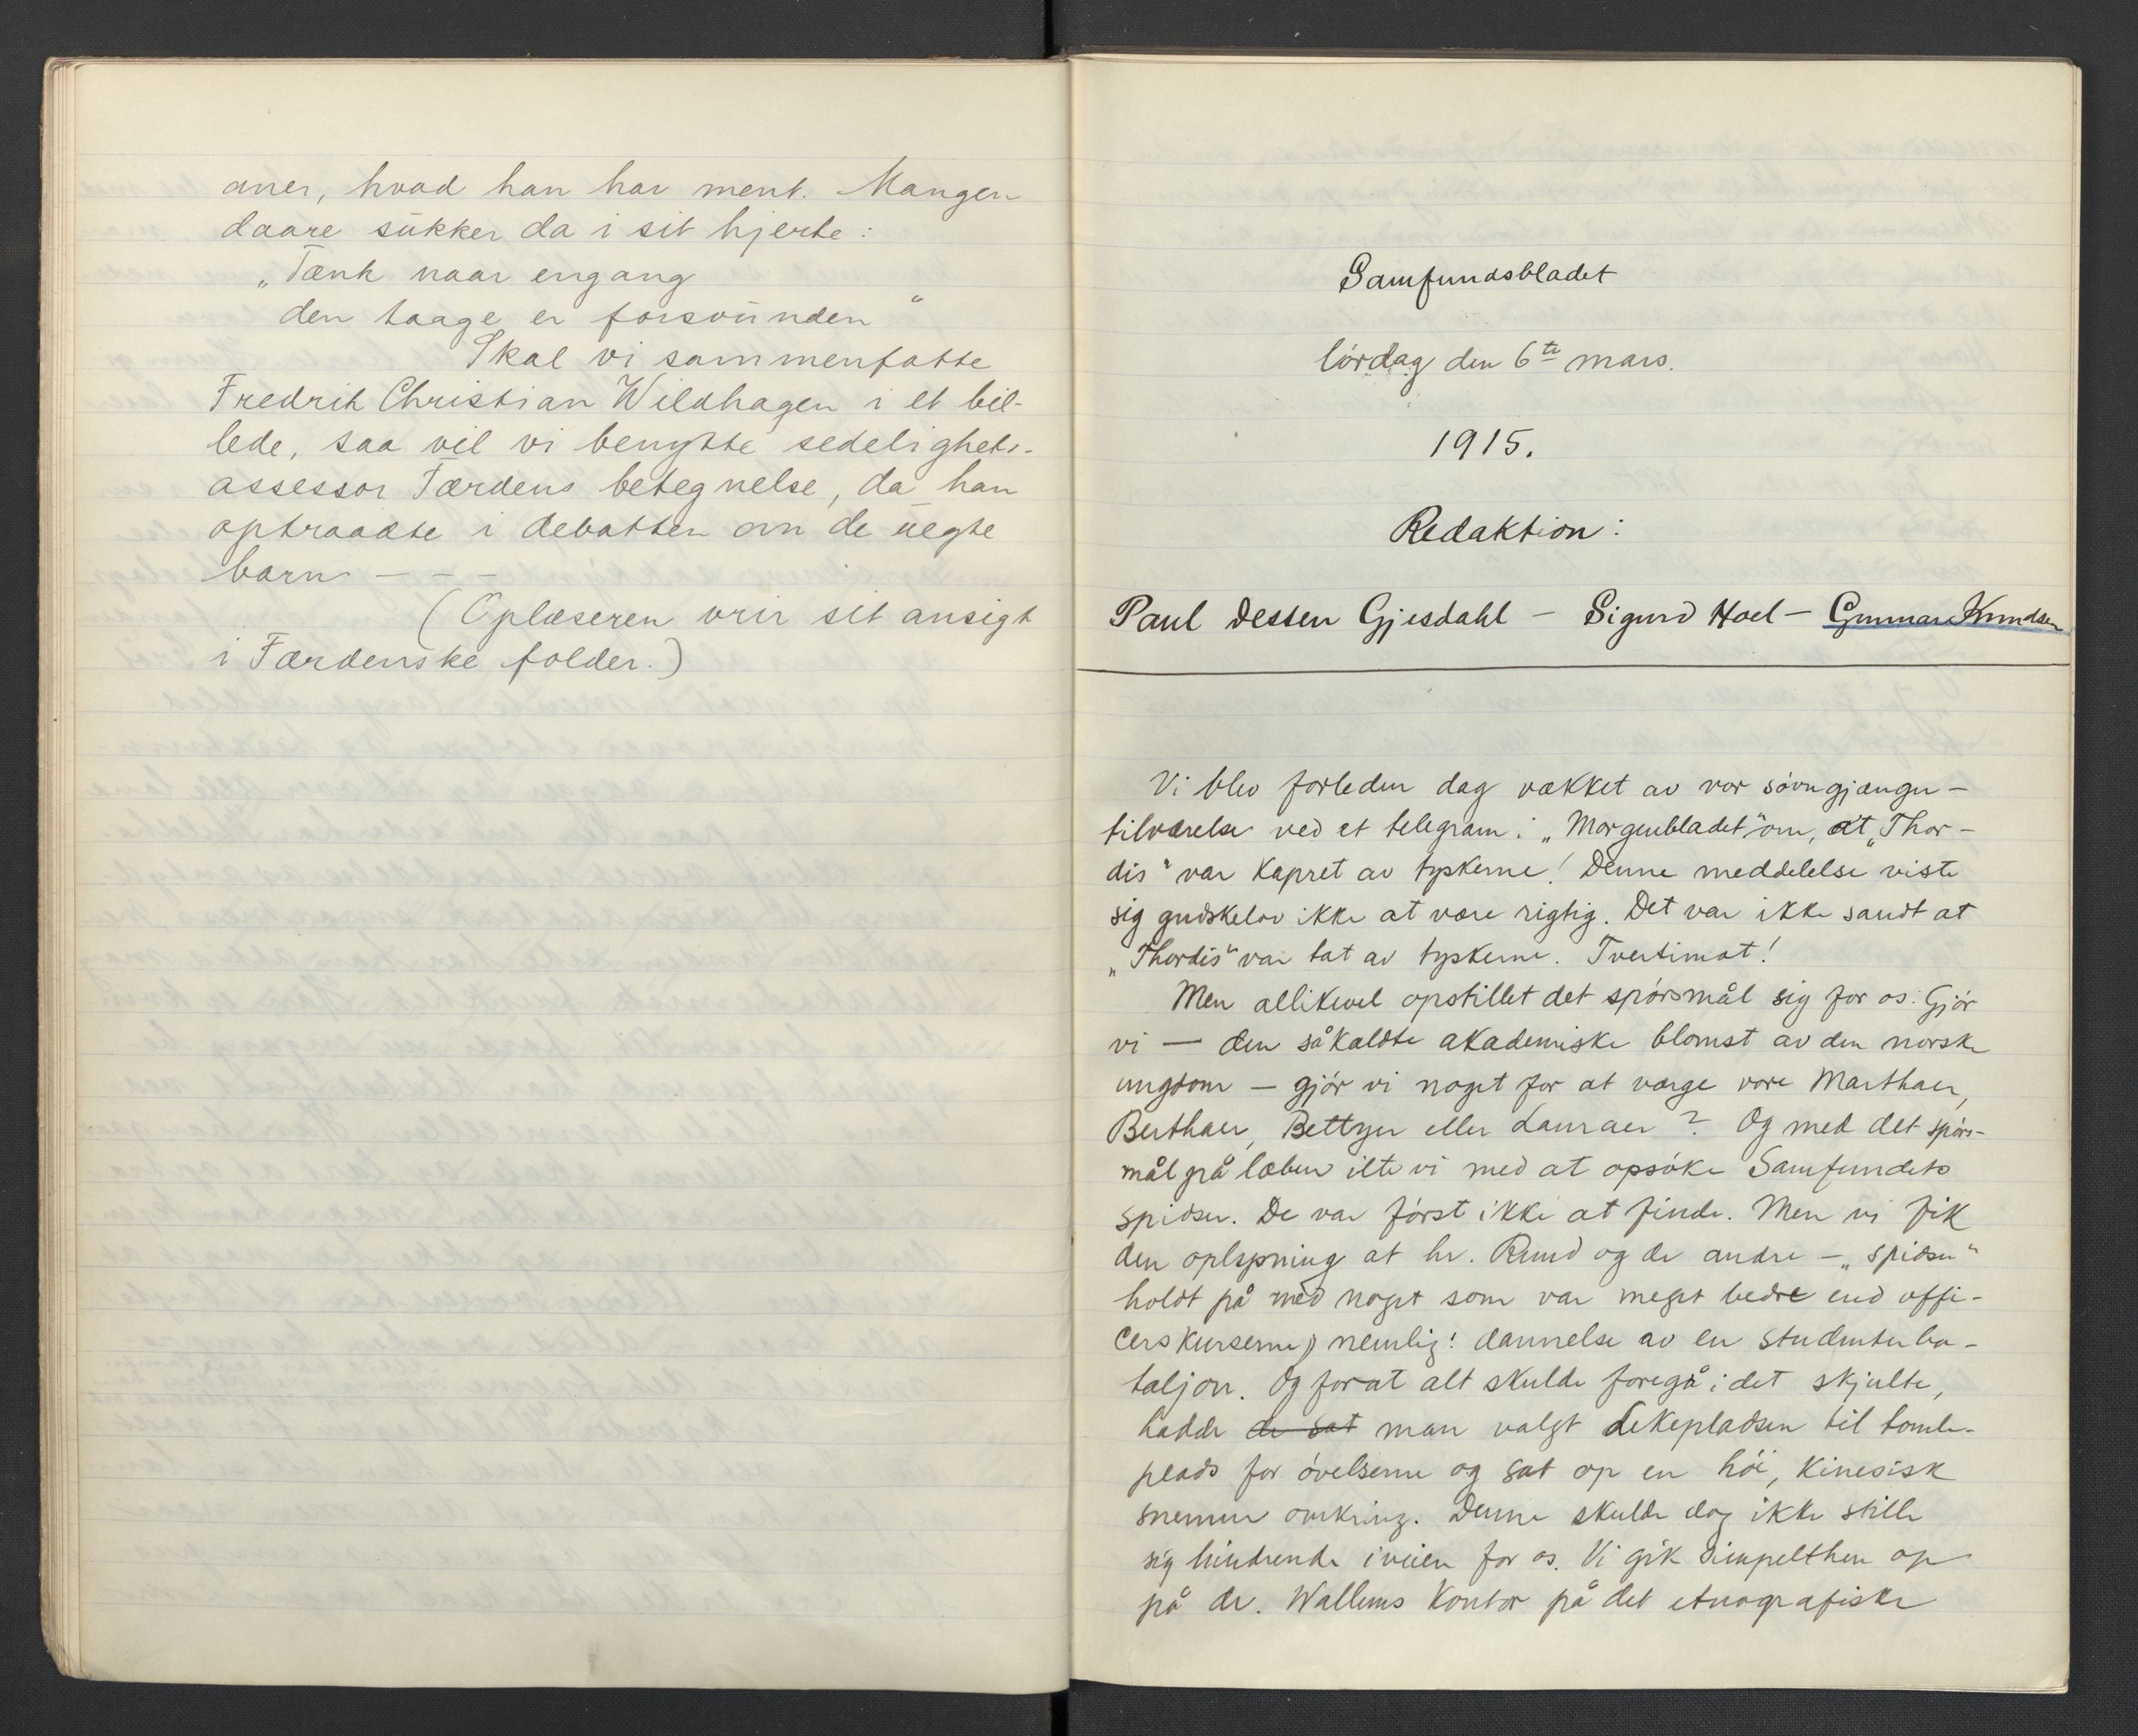 aner, hvad han har ment. Mangen
daare sükker da i sit hjerte:
„Tænk naar engang
den taage er forsvünden“
Skal vi sammenfatte
Fredrik Christian Wildhagen i et bil-
lede, saa vil vi benytte sedeligheds-
assessor Færdens betegnelse, da han
optraadte i debatten om de üegte
barn - - -
(Oplæseren vrir sit ansigt
i Færdenske folder.)
Samfundsbladet
lördag den 6te mars.
1915.
Redaktion:
Paul Dessen Gjesdahl - Sigurd Hoel - Gunnar Knudsen
Vi blev forleden dag vækket av vor sövngjænger-
tilværelse ved et telegram i „Morgenbladet“ om, at „Thor-
dis“ var kapret av tyskerne! Denne meddelelse viste
sig gudskelov ikke at være rigtig. Det var ikke sandt at
„Thordis“ var tat av tyskerne. Tvertimot!
Men allikevel opstillet det spörsmål sig for os: Gjör
vi — den såkaldte akademiske blomst av den norske
ungdom — gjör vi noget for at værge vore Marthaer,
Berthaer, Bettyer eller Lauraer? Og med det spörs-
mål på læben ilte vi med at opsöke Samfundets
spidser. De var först ikke at finde. Men vi fik
den oplysning at hr. Ruud og de andre - „spidser“
holdt på med noget som var meget bedre end offi-
cerskurserne, nemlig: dannelse av en studenterba-
taljon. Og forat alt skulde foregå i det skjulte,
hadde de sat man valgt Lekepladsen til tumle-
plads for övelserne og sat op en höi, kinesisk
snemur omkring. Denne skulde dog ikke stille
sig hindrende iveien for os. Vi gik simpelthen op
på dr. Wallems kontor på det etnografiske